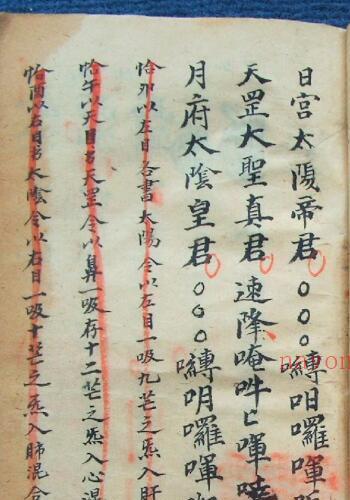 日宮太陽帝君○○○縳呾囉㖶
天罡大聖真君 速降唵吽㖶
月府太陰皇君○○○縳囉㖶
恰卯以左目各書太陽令以左目一吸九芒之炁入肝
恰午以天目书天罡令以鼻一吸存十二芒之炁入心混
恰酉以右目书太陰令以右目一吸十芒之炁入肺混合